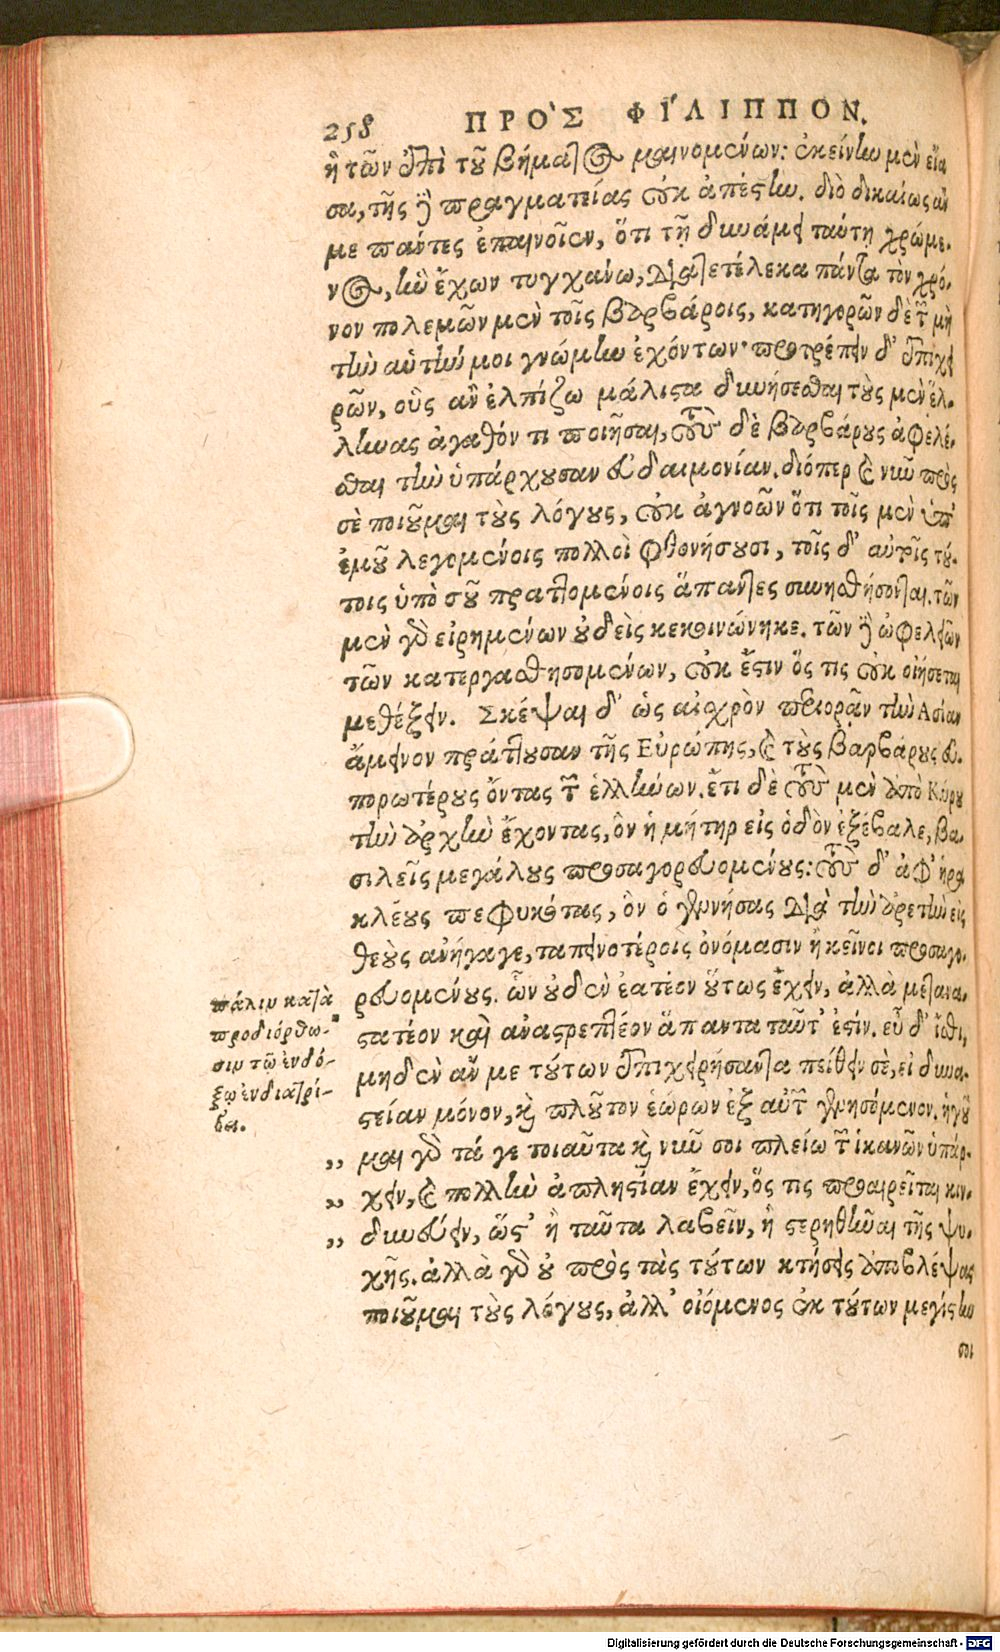 258 ΠΡΟ᾽Σ ΦΙ᾽ΛΙΠΠΟΝ.
ἢ τῶν ἐπὶ τοῦ βήματος μαινομένων: ἐκείνην μὲν εἴα
σα, τῆς δὲ πραγματείας οὐκ ἀπέστην. διὸ δικαίως ἄν
με πάντες ἐπαινοῖεν, ὅτι τῇ δυνάμει ταύτῃ χρώμε-
νος, ἣν ἔχων τυγχάνω, διατετέλεκα πάντα τὸν χρό-
νον πολεμῶν μὲν τοῖς βαρβάροις, κατηγορῶν δὲ τῶν μὴ
τὴν αὐτήν μοι γνώμην ἐχόντων· προτρέπειν δ᾽ ἐπιχει
ρῶν, οὓς ἂν ἐλπίζω μάλιστα δυνήσεσθαι τοὺς μὲν ἕλ-
ληνας ἀγαθόν τι ποιῆσαι, τοὺς δὲ βαρβάρους ἀφελέ-
σθαι τὴν ὑπάρχουσαν εὐδαιμονίαν. διόπερ καὶ νῦν πρὸς
σὲ ποιοῦμαι τοὺς λόγους, οὐκ ἀγνοῶν ὅτι τοῖς μὲν ὑπ᾽
ἐμοῦ λεγομένοις πολλοὶ φθονήσουσι, τοῖς δ᾽ αὐτοῖς τού-
τοις ὑπὸ σοῦ πραττομένοις ἅπαντες συνησθήσονται. τῶν
μὲν γὰρ εἰρημένων οὐδεὶς κεκοινώνηκε. τῶν δὲ ὠφελειῶν
τῶν κατεργασθησομένων, οὐκ ἔστιν ὅς τις οὐκ οἰήσεται
μεθέξειν. Σκέψαι δ᾽ ὡς αἰσχρὸν περιορᾶν τὴν Ἀσίαν
ἄμεινον πράττουσαν τῆς Εὐρώπης, καὶ τοὺς βαρβάρους εὐ-
πορωτέρους ὄντας τῶν ἑλλήνων. ἔτι δὲ τοὺς μὲν ἀπὸ Κύρου
τὴν ἀρχὴν ἔχοντας, ὃν ἡ μήτηρ εἰς ὁδὸν ἐξέβαλε, βα-
σιλεῖς μεγάλους προσαγορευομένους: τοὺς δ᾽ ἀφ᾽ ἡρα
κλέους πεφυκότας, ὃν ὁ γεννήσας διὰ τὴν ἀρετὴν εἰς
θεοὺς ἀνήγαγε, ταπεινοτέροις ὀνόμασιν ἢ κεῖνοι προσαγο-
ρευομένους. ὧν οὐδὲν ἐατέον οὕτως ἔχειν, ἀλλὰ μετανα-
στατέον καὶ ἀναστρεπτέον ἅπαντα ταῦτ᾽ ἐστίν. εὖ δ᾽ ἴσθι,
μηδὲν ἄν με τούτων ἐπιχειρήσαντα πείθειν σὲ, εἰ δυνα-
στείαν μόνον, καὶ πλοῦτον ἑώρων ἐξ αὐτῶν γενησόμενον. ἡγοῦ
,, μαι γὰρ τά γε τοιαῦτα καὶ νῦν σοι πλείω τῶν ἱκανῶν ὑπάρ-
,, χειν, καὶ πολλὴν ἀπληστίαν ἔχειν, ὅς τις προαιρεῖται κιν-
,, δυνεύειν, ὥστ᾽ ἢ ταῦτα λαβεῖν, ἢ στερηθῆναι τῆς ψυ-
χῆς. ἀλλὰ γὰρ οὐ πρὸς τὰς τούτων κτήσεις ἀποβλέψας
ποιοῦμαι τοὺς λόγους, ἀλλ᾽ οἰόμενος ἐκ τούτων μεγίστην
σοι
πάλιν κατὰ
προδιόρθω-
σιν τῷ ἐνδό-
ξῳ ἐνδιατρί-
βει.
Digitalisierung gefördert durch die Deutsche Forschungsgemeinschaft - DFG